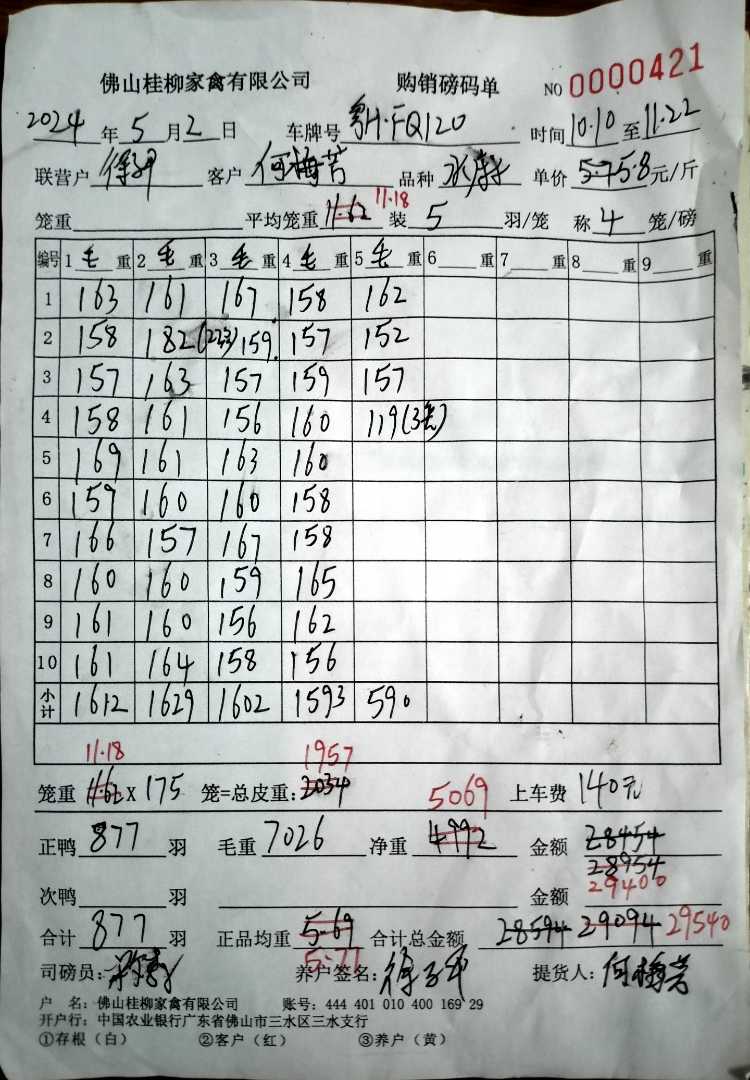 佛山桂柳家禽有限公司 购销磅码单 NO 0000421
2024 年 5 月 2 日 车牌号 粤H·FQ120 时间 10.10 至 11.22
联营户 客户 何梅芳 品种 单价 5.75 5.8 元/斤
11.18
笼重 平均笼重 11.62 装 5 羽/笼 称 4 笼/磅
编号 1 毛 重 2 毛 重 3 毛 重 4 毛 重 5 毛 重 6 重 7 重 8 重 9 重
1 163 161 167 158 162
2 158 182 159 157 152
3 157 163 157 159 157
4 158 161 156 160 119(3笼)
5 169 161 163 160
6 159 160 160 158
7 166 157 167 158
8 160 160 159 165
9 161 160 156 162
10 161 164 158 156
小计 1612 1629 1602 1593 590
11.18 1957
笼重 11.62 X 175 笼=总皮重: 2034 5069 上车费 140元
正鸭 877 羽 毛重 7026 净重 4992 金额 28454
28954
次鸭 羽 金额 29400
合计 877 羽 正品均重 5.69 合计总金额 28594 29094 29540
5.77
司磅员: 养户签名: 提货人: 何梅芳
户 名: 佛山桂柳家禽有限公司 账号: 444 401 010 400 169 29
开户行: 中国农业银行广东省佛山市三水区三水支行
①存根（白） ②客户（红） ③养户（黄）